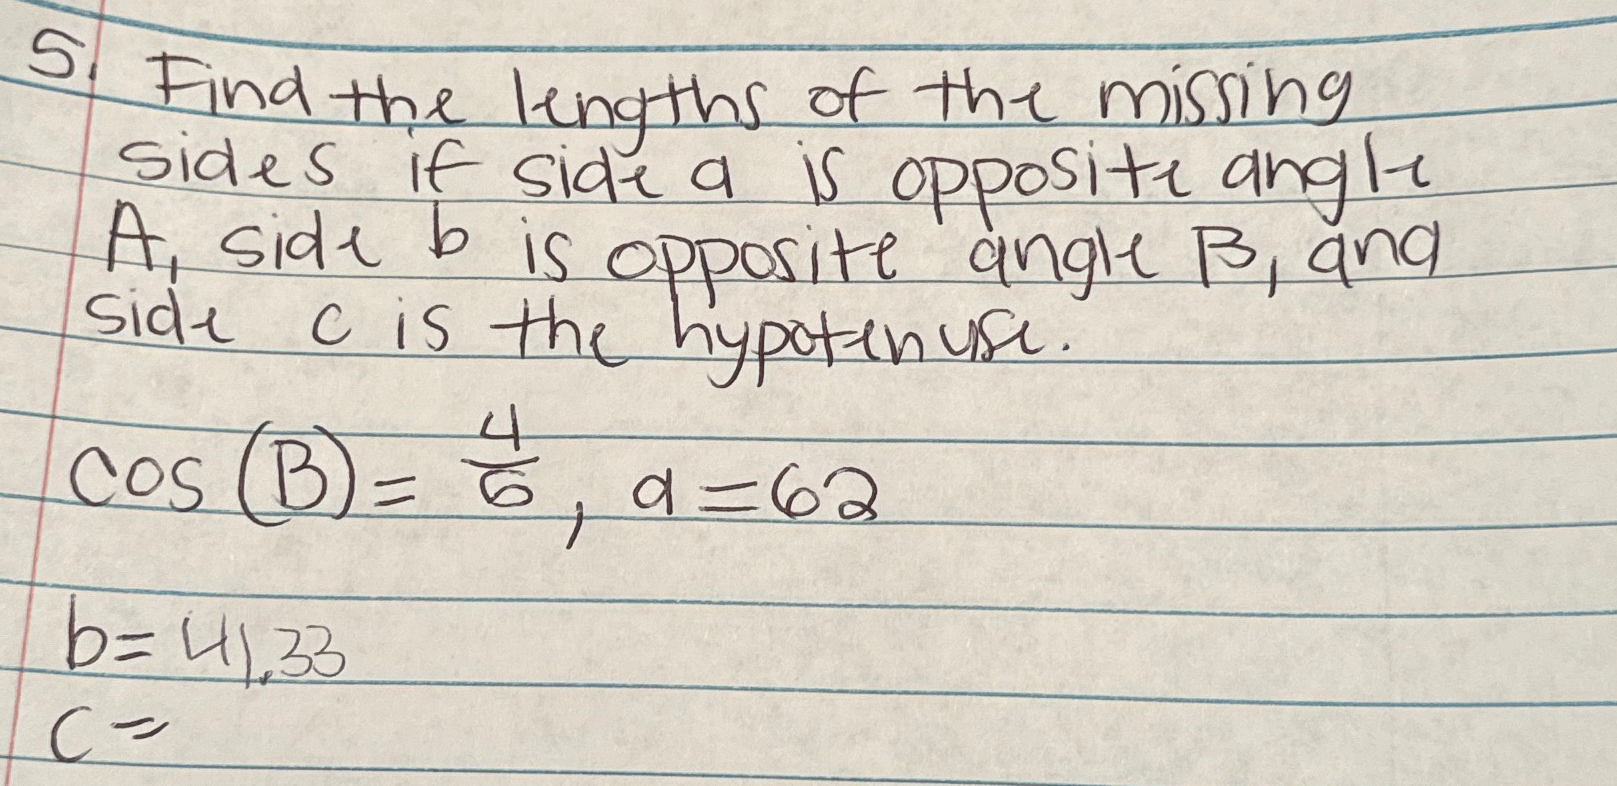 5. Find the lengths of the missing
sides if side a is opposite angle
A, side b is opposite angle B, and
side c is the hypotenuse.
cos (B) = 4/6, a = 62
b = 41.33
c =